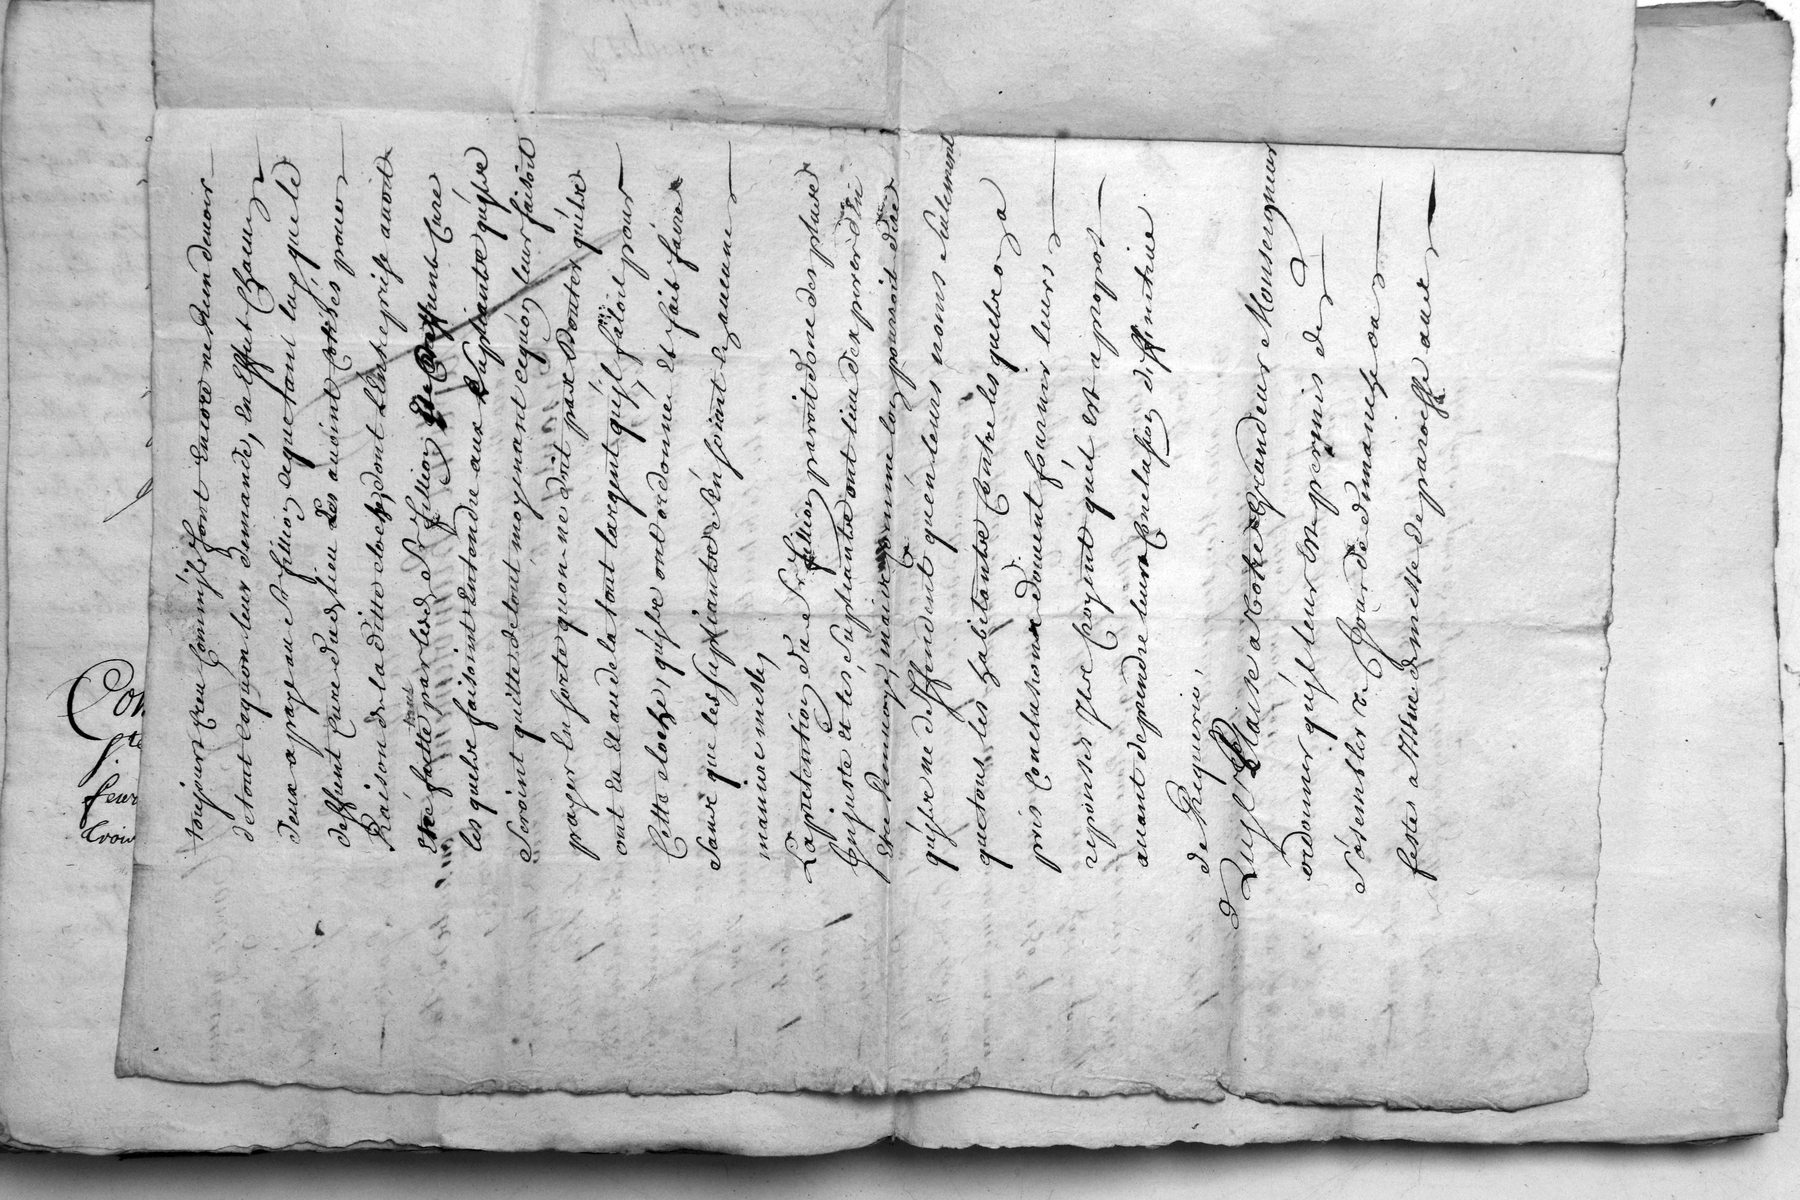 toujours creu comm'ils font encore ne rien devoir
de tout ce qu'on leur demande, en effet chacun
d'eux a payé au Sr fillion ce que tant luy que le
deffunt curé dudt lieu les avoint cottisés pour
Raison de la ditte cloche dont l'entreprise avoit
été faitte par led Sr fillion deffunt curé
les quels faisoint entendre aux supliants qu'ils
seroint quittes de tout moyenant ce qu'on leur faisoit
payer en sorte qu'on ne doit pas douter qu'ils
ont eu et au dela tout l'argent qu'il falloit pour
cette cloche, qu'ils ont ordonnée et fait faire
sans que les supliants s'en soient en aucune
maniere meslés
La pretention du Sr fillion paroit donc des plus
injuste et les supliants ont lieu d'esperer d'en
être renvoyés, mais comme lon pourroit dire
qu'ils ne deffendent qu'en leurs noms seulement
que tous les habitants contre les quels on a
pris conclusions doivent fournir leurs
reponses ils croyent qu'il est apropos
avant de prendre leurs conclusions diffinitives
de Requerir,
Qu'il Plaise a Votre Grandeur Monseigneur
ordonner qu'il leur est permis de
s'assembler un jour de dimanche ou
festes a issue de messe de paroisse aux
Con
Ste
feur
troi